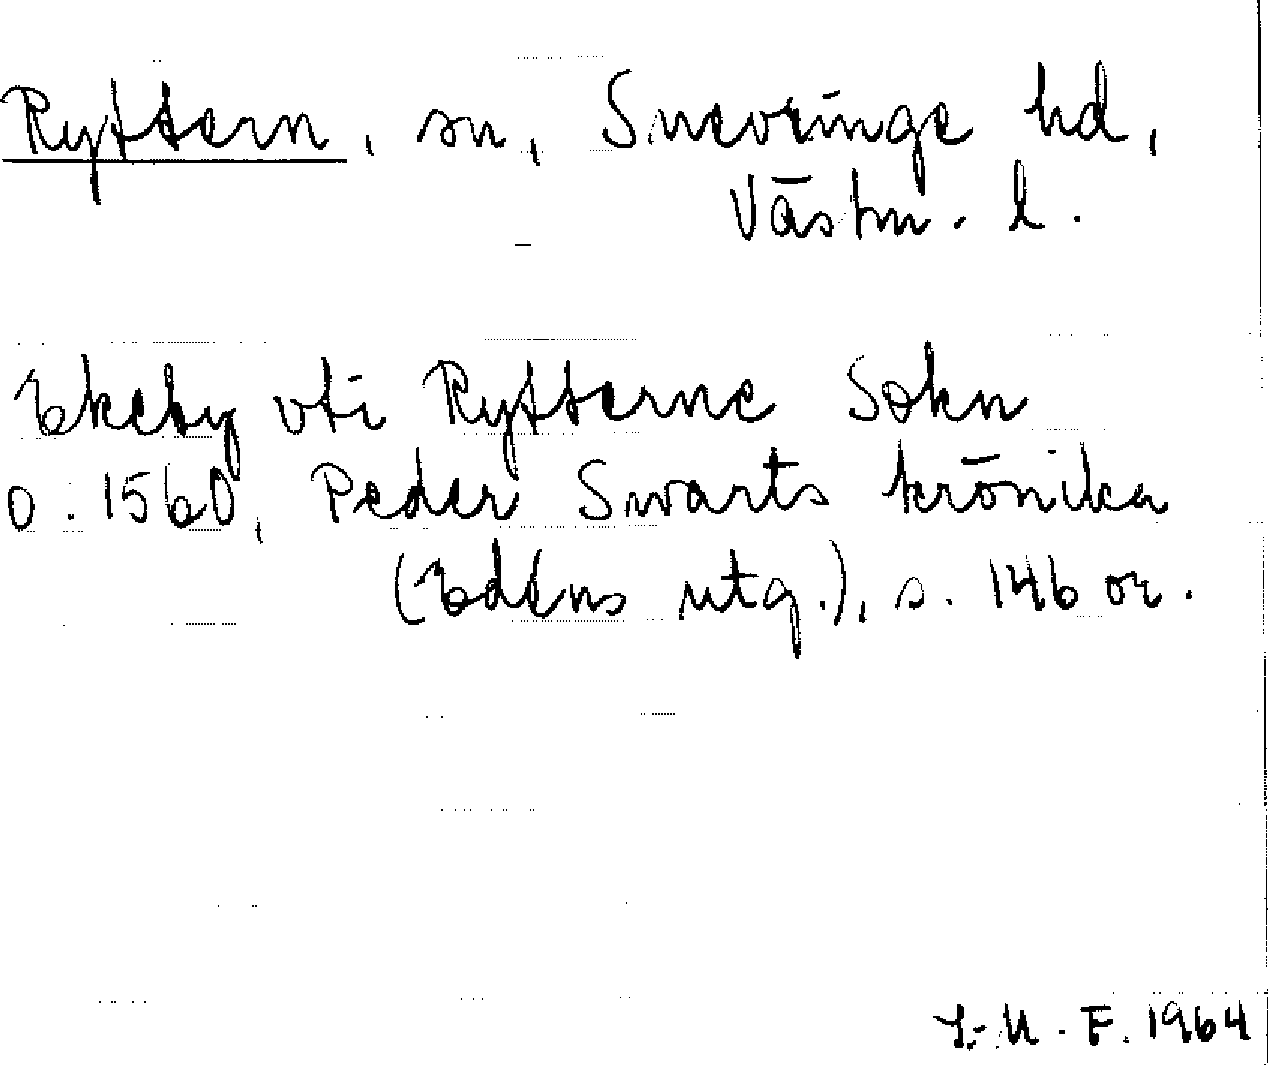 Ryttern, sn, Snevringe hd,
Västm. l.
Ekeby vti Rytterne Sokn
o. 1560, Peder Swarts krönika
(Edéns utg.), s. 146 or.
F. 1964